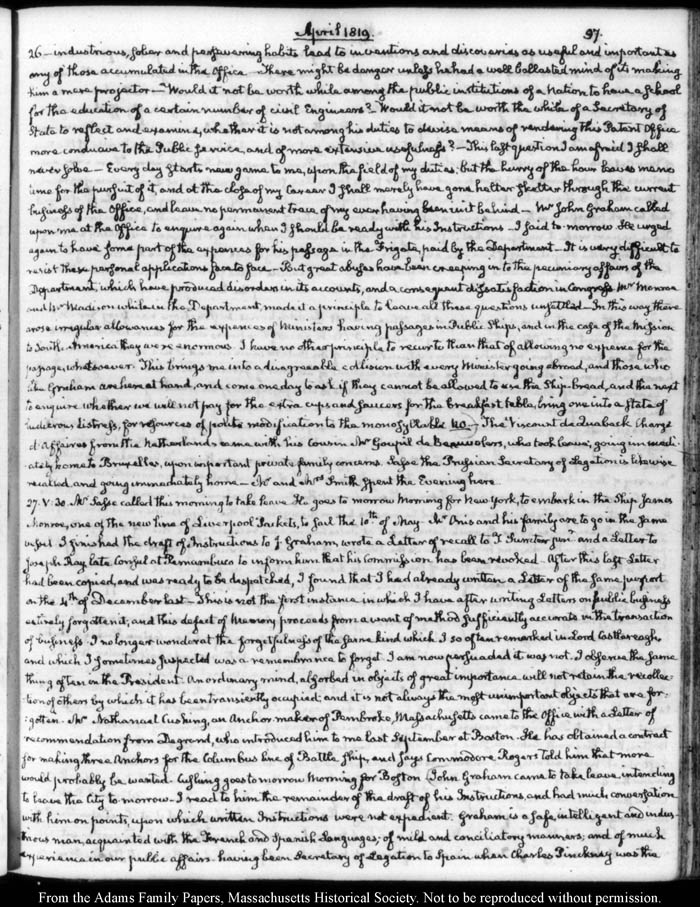 April 1819.
97.
26 — industrious, sober and persevering habits lead to inventions and discoveries as useful and important as
any of those accumulated in the Office — There might be danger unless he had a well ballasted mind of its making
him a mere projector — Would it not be worth while among the public institutions of a Nation to have a School
for the education of a certain number of civil Engineers? — Would it not be worth the while of a Secretary of
State to reflect and examine, whether it is not among his duties to devise means of rendering this Patent Office
more conducive to the Public service, and of more extensive usefulness? — This last question I am afraid I shall
never solve — Every day starts new game to me, upon the field of my duties; but the hurry of the hour leaves me no
time for the pursuit of it, and at the close of my Career I shall merely have gone helter skelter through the current
business of the Office, and leave no permanent trace of my ever having been in it behind — Mr John Graham called
upon me at the Office to enquire again when I should be ready with his Instructions — I said to-morrow. He urged
again to have some part of the expences for his passage in the Frigate, paid by the Department — It is very difficult to
resist these personal applications face to face — But great abuses have been creeping in to the pecuniary affairs of the
Department, which have produced disorders in its accounts, and a consequent dissatisfaction in Congress. Mr Monroe
and Mr Madison while in the Department, made it a principle to leave all these questions unsettled — In this way there
arose irregular allowances for the expences of Ministers having passages in Public Ships, and in the case of the Mission
to South America they were enormous. I have no other principle to recur to than that of allowing no expence for the
passage, whatsoever. This brings me into a disagreeable collision with every Minister going abroad, and those who
like Graham are here at hand, and come one day to ask if they cannot be allowed to use the Ship-bread, and the next
to enquire whether we will not pay for the extra cups and saucers for the breakfast table, bring one into a state of
ludicrous distress, for resources of polite modification to the monosyllable no. — The Viscount de Quaback Chargé
d'Affaires from the Netherlands came with his Cousin Mr Goupil de who took leave, going immedi-
ately home to Bruxelles, upon important private family concerns. the Prussian Secretary of Legation is likewise
recalled, and going immediately home — Mr and Mrs Smith spent the Evening here.
27. V:30. Mr called this morning to take leave. He goes to morrow Morning for New York, to embark in the Ship James
Monroe, one of the new line of Liverpool Packets, to sail the 10th of May. Mr Onis and his family are to go in the same
vessel. I finished the draft of Instructions to J. Graham, wrote a Letter of recall to T. Sumter junr. and a Letter to
Joseph Ray late Consul at Pernambuco to inform him that his Commission has been revoked — After this last Letter
had been copied, and was ready to be despatched, I found that I had already written a Letter of the same purport
on the 4th of December last — This is not the first instance in which I have after writing Letters on public business
entirely forgotten it; and this defect of Memory proceeds from a want of method sufficiently accurate in the transaction
of business. I no longer wonder at the forgetfulness of the same kind which I so often remarked in Lord Castlereagh,
and which I sometimes suspected was a remembrance to forget. I am now persuaded it was not. I observe the same
thing often in the President. An ordinary mind, absorbed in objects of great importance will not retain the recollec-
tion of others by which it has been transiently occupied; and it is not always the most unimportant objects that are for-
:gotten. Mr Nathanael Cushing, an Anchor maker of Pembroke, Massachusetts came to the Office with a Letter of
recommendation from Degrand, who introduced him to me last September at Boston. He has obtained a contract
for making three Anchors for the Columbus line of Battle Ship, and says Commodore Rogers told him that more
would probably be wanted. Cushing goes to morrow Morning for Boston. John Graham came to take leave, intending
to leave the City to-morrow. I read to him the remainder of the draft of his Instructions, and had much conversation
with him on points, upon which written Instructions were not expedient. Graham is a safe, intelligent and indus-
trious man, acquainted with the French and Spanish Languages; of mild and conciliatory manners; and of much
experience in our public affairs. having been Secretary of Legation to Spain when Charles Pinckney was the
From the Adams Family Papers, Massachusetts Historical Society. Not to be reproduced without permission.